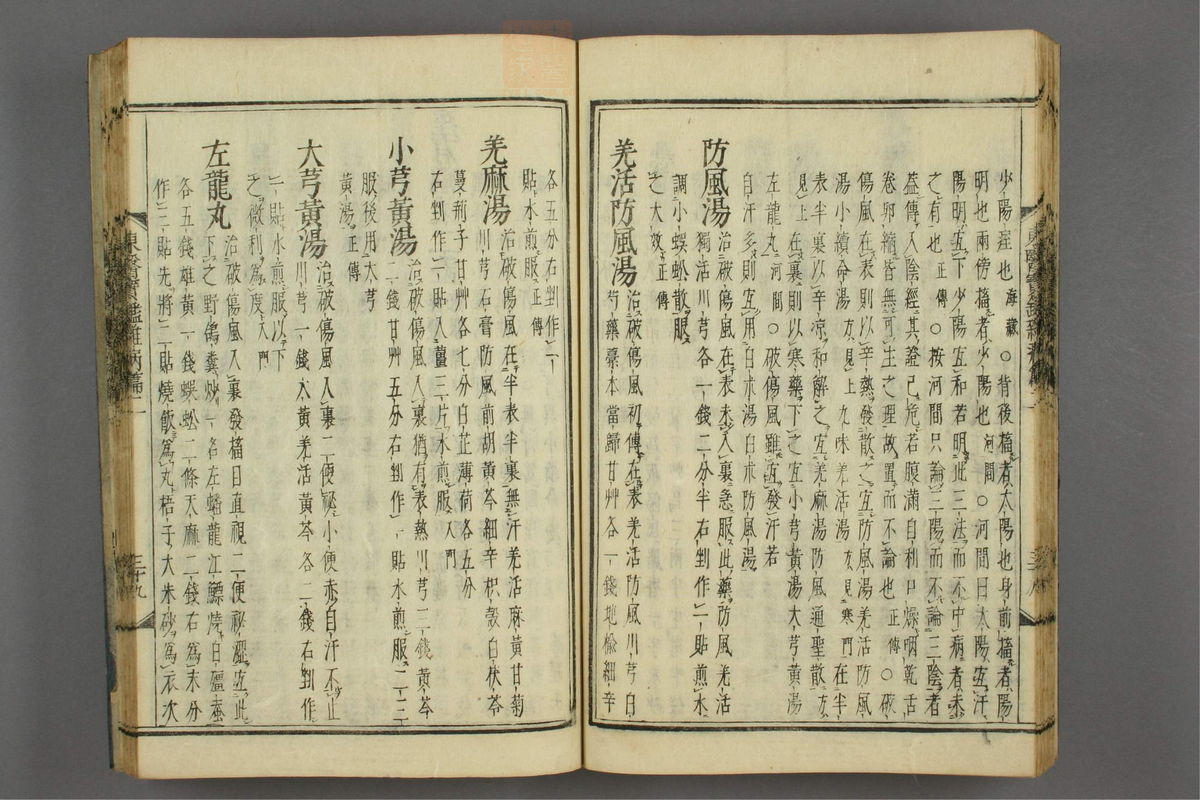 少陽痓也海藏○背後搐者太陽也身前搐者陽
明也兩傍搐者少陽也河間○河間曰太陽宜汗
陽明宜下少陽宜和若明此三法而不中病者未
之有也正傳○按河間只論三陽而不論三陰者
蓋傳入陰經其證已危若腹滿自利口燥咽乾舌
卷卵縮皆無可生之理故置而不論也正傳○破
傷風在表則以辛熱發散之宜防風湯羌活防風
湯小續命湯方見上九味羌活湯方見寒門在半
表半裏以辛凉和解之宜羌麻湯防風通聖散方
見上在裏則以寒藥下之宜小芎黃湯大芎黃湯
左龍丸河間○破傷風雖宜發汗若
自汗多則宜用白朮湯白朮防風湯
防風湯治破傷風在表未入裏急服此藥防風羌活
獨活川芎各一錢二分半右剉作一貼煎水
調小蜈蚣散服
之大效正傳
羌活防風湯治破傷風初傳在表羌活防風川芎白
芍藥藁本當歸甘艸各一錢地楡細辛
各五分右剉作一
貼水煎服正傳
羌麻湯治破傷風在半表半裏無汗羌活麻黃甘菊
川芎石膏防風前胡黃芩細辛枳殼白茯苓
蔓荊子甘艸各七分白芷薄荷各五分
右剉作一貼入薑三片水煎服入門
小芎黃湯治破傷風入裏猶有表熱川芎三錢黃芩
二錢甘艸五分右剉作一貼水煎服二三
服後用大芎
黃湯正傳
大芎黃湯治破傷風入裏二便秘小便赤自汗不止
川芎一錢大黃羌活黃芩各二錢右剉作
一貼水煎服以下
之微利爲度入門
左龍丸治破傷風入裏發搐目直視二便秘澀宜此
下之野鴿糞炒一名左蟠龍江鰾燒白殭蠶
各五錢雄黃一錢蜈蚣二條天麻二錢右爲末分
作三貼先將二貼燒飯爲丸梧子大朱砂爲衣次
東醫寶鑑雜病篇二
三十九